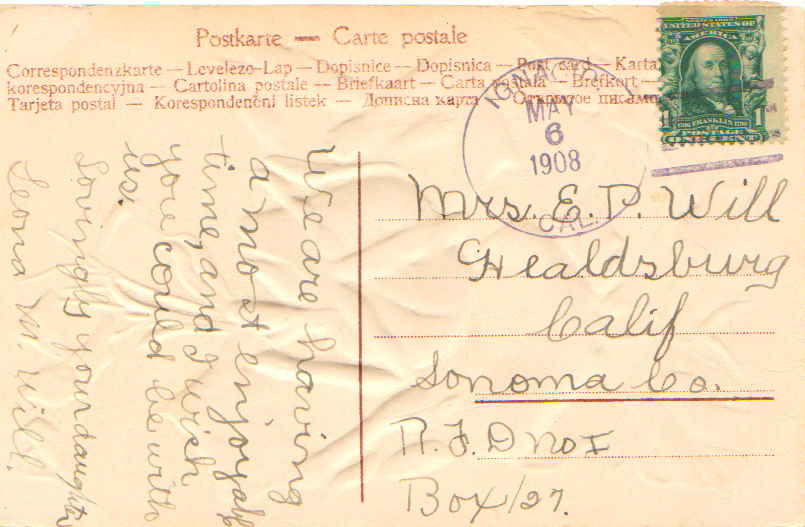 Postkarte — Carte postale
Correspondenzkarte — Levelezo-Lap — Dopisnice — Dopisnica — Post card — Karta
korespondencyjna — Cartolina postale — Briefkaart — Carta Postala — Brefkort —
Tarjeta postal — Korespondencni listek — Дописна карта — Открытое письмо
IGNACIO
MAY
6
1908
CAL.
SERIES 1902
UNITED STATES OF
AMERICA
1 FRANKLIN 1
POSTAGE
ONE CENT
We are having
a most enjoyabl
time, and I wish
you could be with
us.
Lovingly your daughter
Leona M. Will.
Mrs. E. P. Will
Healdsburg
Calif
Sonoma Co.
R. F. D no I
Box 127.